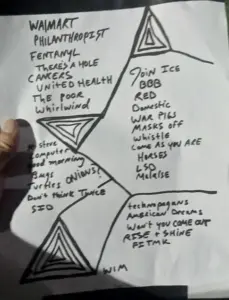 WALMART
PHILANTHROPIST
FENTANYL
THERES A HOLE
CANCERS
UNITED HEALTH
THE POOR
Whirlwind
JOIN ICE
BBB
RED
Domestic
WAR PIGS
MASKS OFF
Whistle
Come AS YOU ARE
HORSES
LSD
Melrise
store
Computer
Good morning
Bugs
Turtles ONIONS!
Don't think TWICE
SID
technopagans
American Dreams
Won't you COME OUT
RISE + SHINE
FITMK
WIM